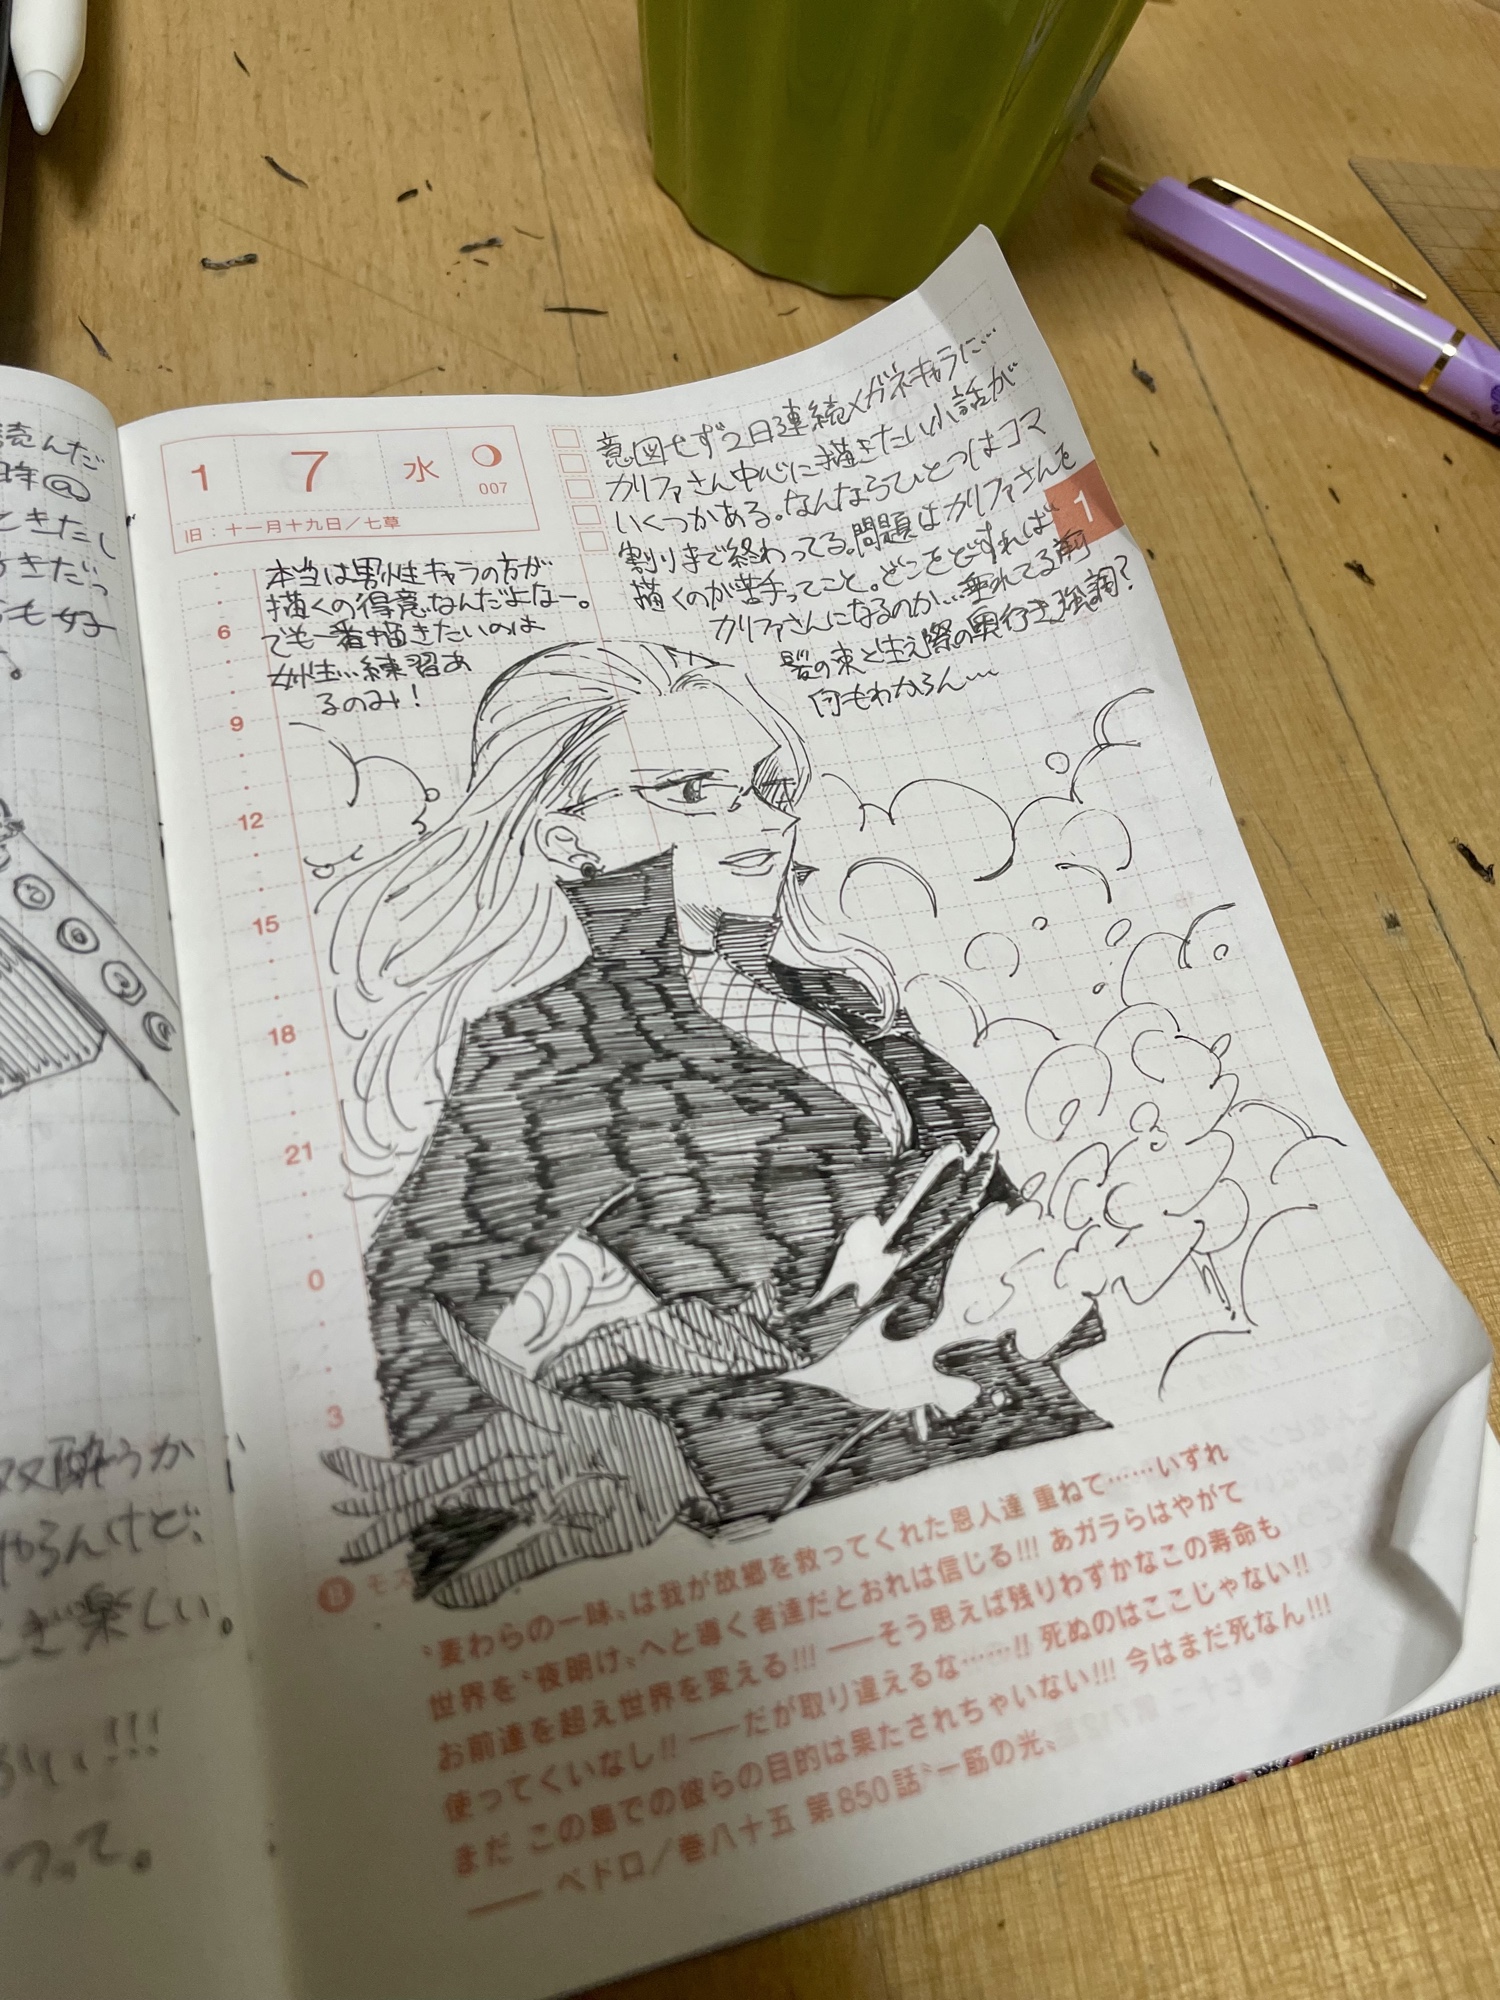 読んだ
年@
ときたし
きだっ
も好
。
双酔うか
やろんけど、
ぎ楽しい。
!!!
って。
1
7
水
007
旧：十一月十九日／七草
意図せず2日連続メガネキャラに…
カリファさん中心に描きたい小話が
いくつかある。なんならひとつはコマ
割りまで終わってる。問題はカリファさんを
描くのが苦手ってこと。どこをどすれば
カリファさんになるのか…垂れてる前
髪の束と生え際の奥行き強調?
何もわからん…
1
本当は男性キャラの方が
描くの得意なんだよなー。
でも一番描きたいのは
女性…練習あ
るのみ!
6
9
12
15
18
21
0
3
B
モ
〝麦わらの一味〟は我が故郷を救ってくれた恩人達 重ねて……いずれ
世界を〝夜明け〟へと導く者達だとおれは信じる!!! あガラらはやがて
お前達を超え世界を変える!!! ――そう思えば残りわずかなこの寿命も
使ってくいなし!! ――だが取り違えるな……!! 死ぬのはここじゃない!!
まだ この島での彼らの目的は果たされちゃいない!!! 今はまだ死なん!!!
―― ペドロ／巻八十五 第850話〝一筋の光〟